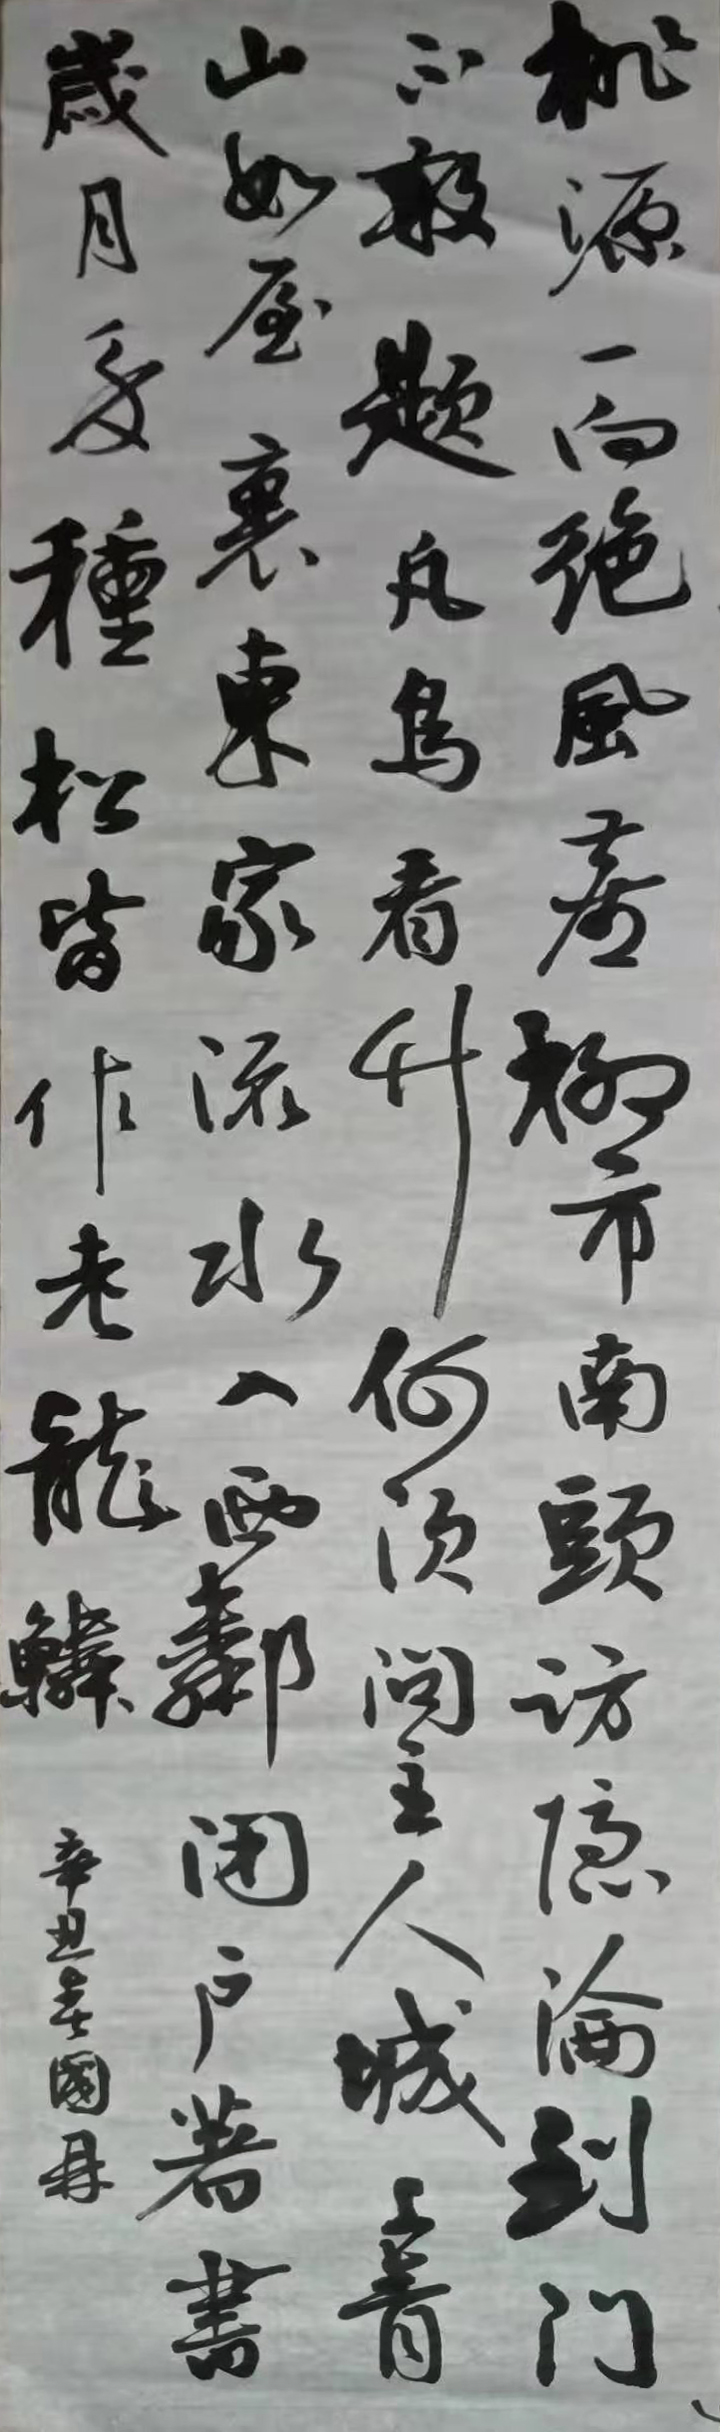 桃源一向絕風塵柳市南頭訪隱淪到門
不敢題凡鳥看竹何須問主人城上青
山如屋裏東家流水入西鄰閉户著書
歲月多種松皆作老龍鱗
辛丑春國